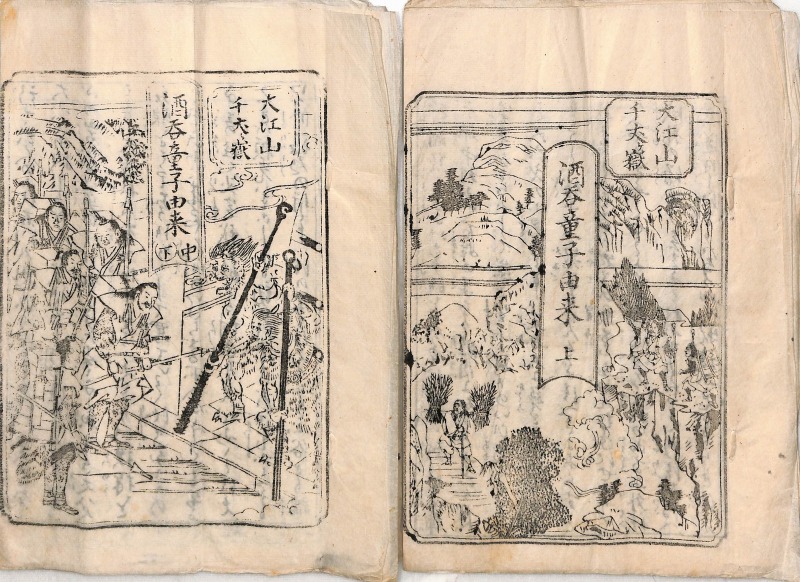 大江山
千丈嶽
酒呑童子由来 上
大江山
千丈嶽
酒呑童子由来 中下